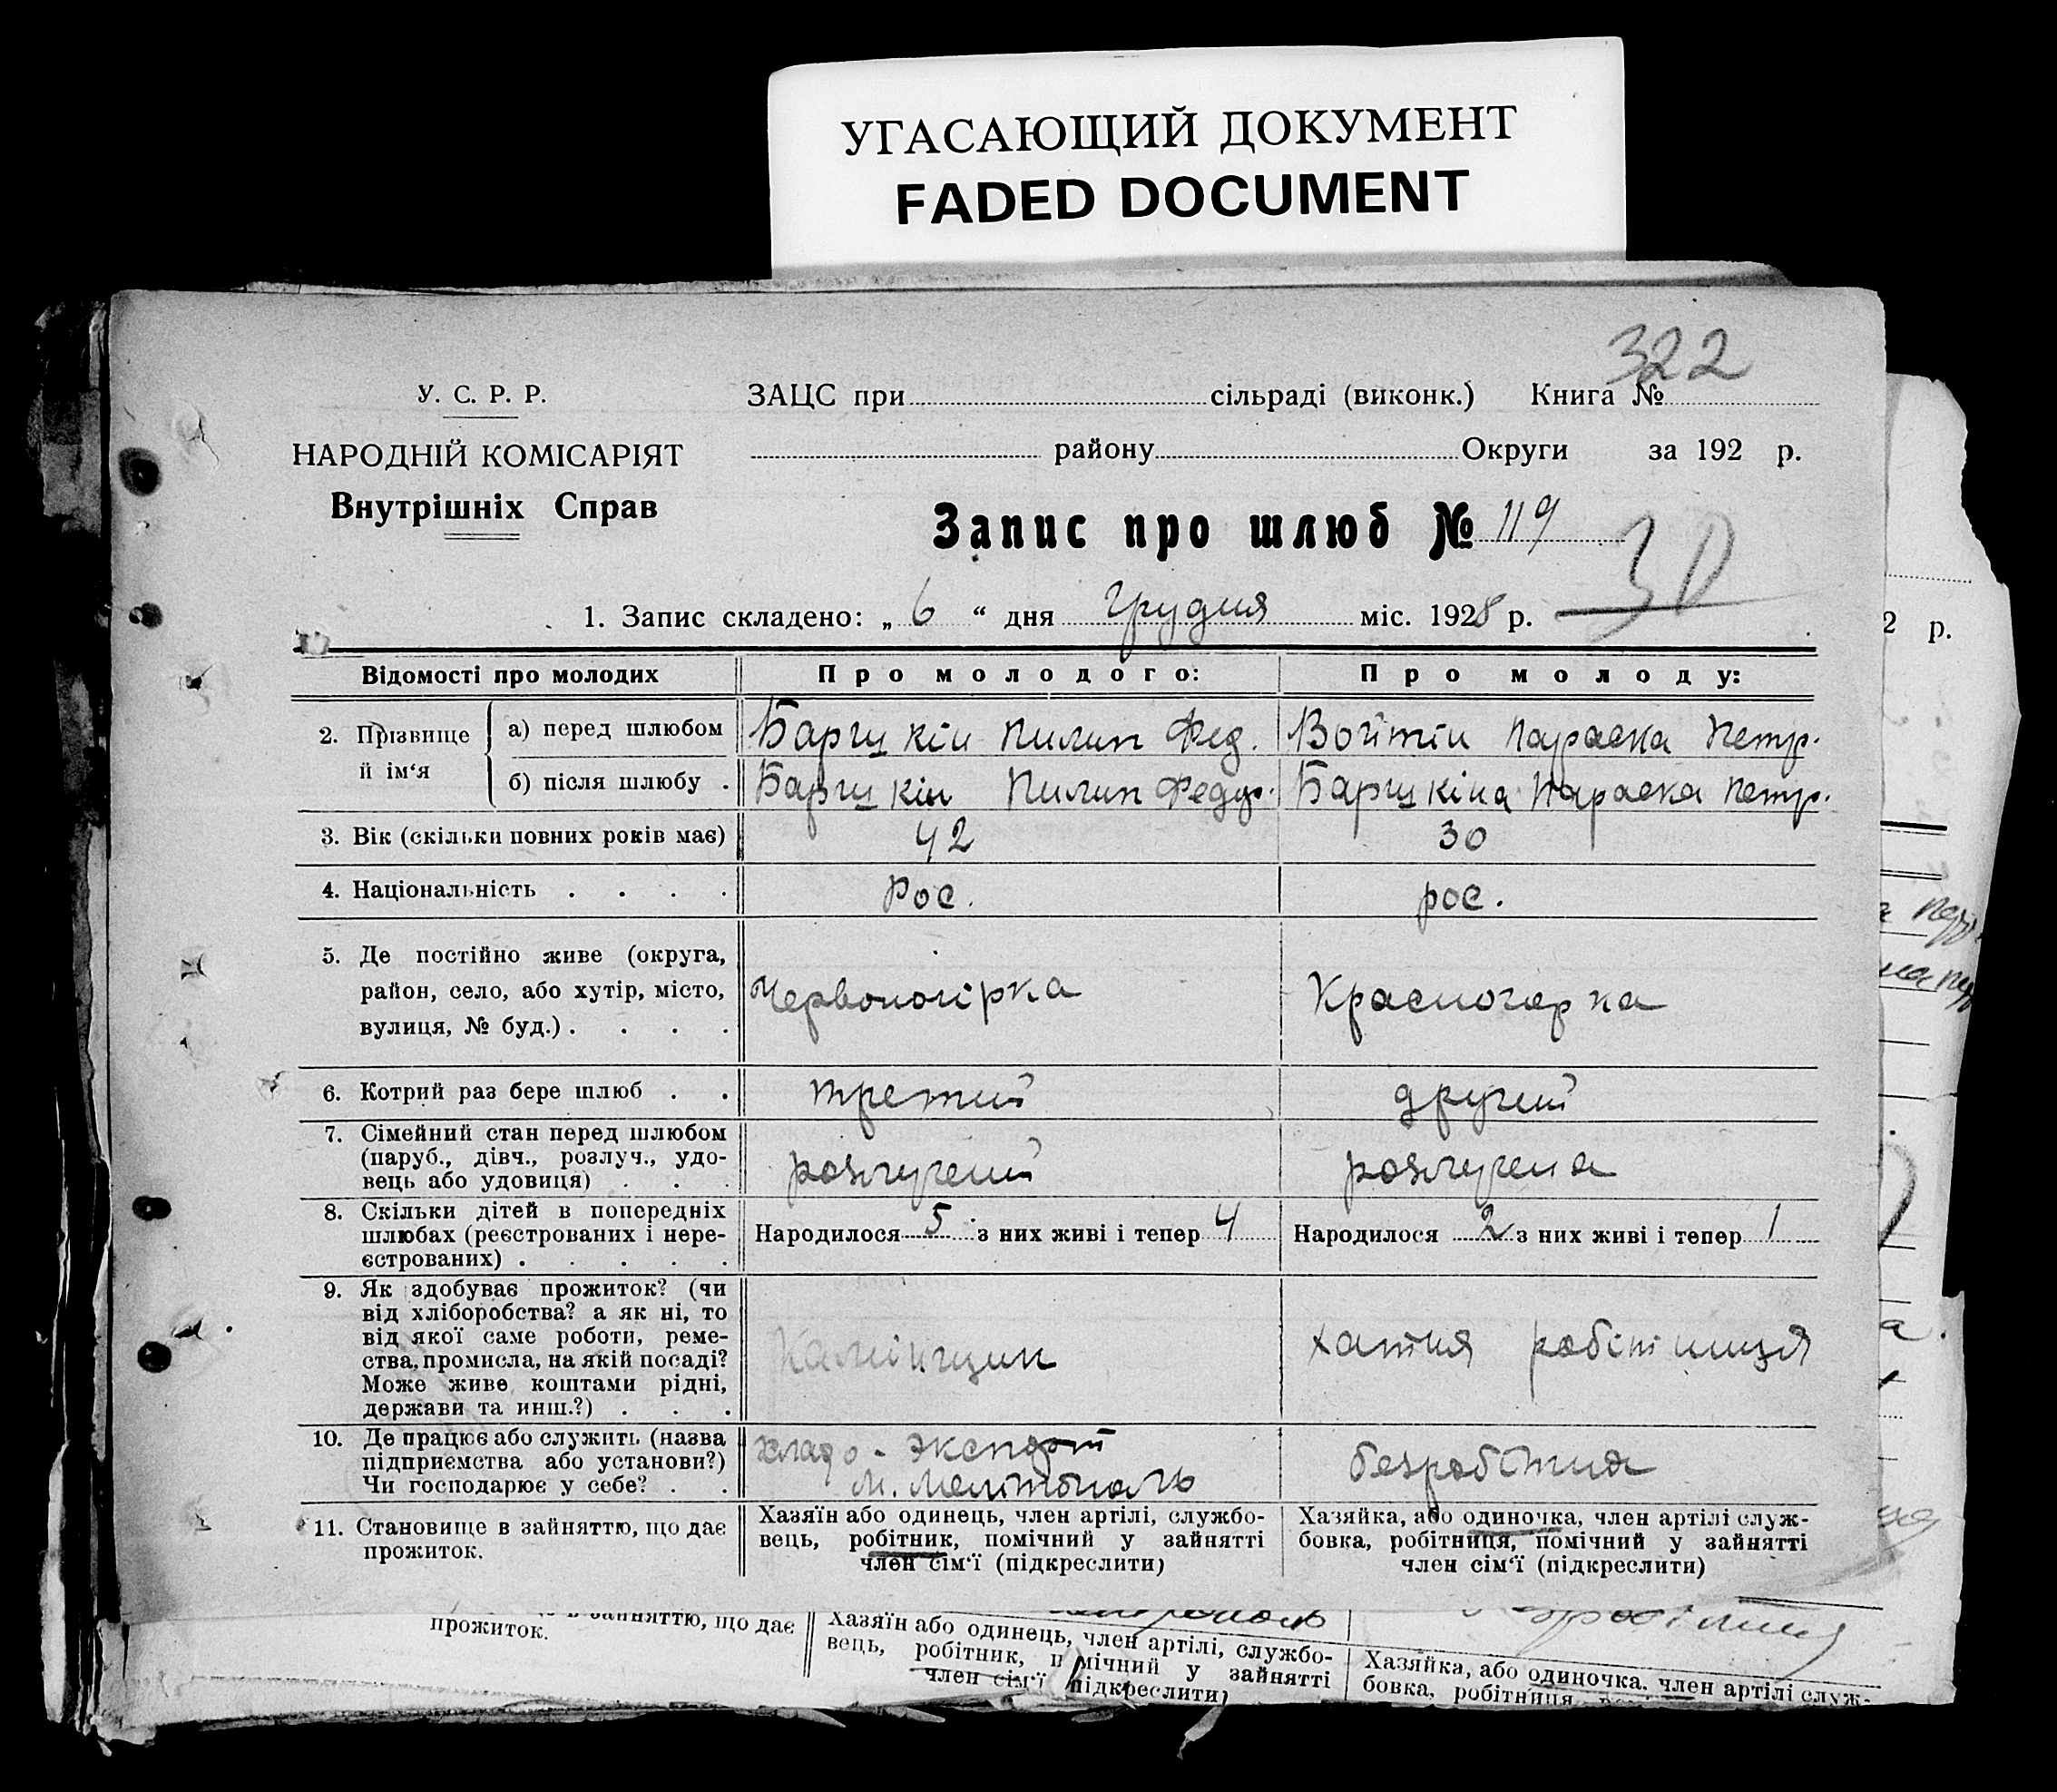 УГАСАЮЩИЙ ДОКУМЕНТ
FADED DOCUMENT
322
У. С. Р. Р.
ЗАЦС при сільраді (виконк.) Книга №
НАРОДНІЙ КОМІСАРІЯТ
району Округи за 192 р.
Внутрішніх Справ
Запис про шлюб № 119
30
1. Запис складено: „ 6 “ дня Грудня міс. 1928 р.
Відомості про молодих
Про молодого:
Про молоду:
2. Прізвище й ім‘я
а) перед шлюбом
Пилип Фед.
Войтін Параска Петр.
б) після шлюбу .
Пилип Федор.
Параска Петр.
3. Вік (скільки повних років має)
42
30
4. Національність . . . .
Рос.
рос.
5. Де постійно живе (округа,
район, село, або хутір, місто,
вулиця, № буд.) . . . .
Червоногірка
Красногорка
6. Котрий раз бере шлюб . .
третий
другий
7. Сімейний стан перед шлюбом
(паруб., дівч., розлуч., удо-
вець або удовиця) . . .
розлучений
розлучена
8. Скільки дітей в попередніх
шлюбах (реєстрованих і нере-
єстрованих) . . . . .
Народилося 5 з них живі і тепер 4
Народилося 2 з них живі і тепер 1
9. Як здобуває прожиток? (чи
від хліборобства? а як ні, то
від якої саме роботи, реме-
ства, промисла, на якій посаді?
Може живе коштами рідні,
держави та инш.?) . . .
хатня робітниця
10. Де працює або служить (назва
підприємства або установи?)
Чи господарює у себе? . .
Хладо-экспорт
М. Мелітополь
безробітня
11. Становище в зайняттю, що дає
прожиток.
Хазяїн або одинець, член артілі, службо-
вець, робітник, помічний у зайнятті
член сім‘ї (підкреслити)
Хазяйка, або одиночка, член артілі служ-
бовка, робітниця, помічний у зайнятті
член сім‘ї (підкреслити)
2 р.
зайняттю, що дає
прожиток.
Хазяїн або одинець, член артілі, службо-
вець, робітник, помічний у зайнятті
член сім‘ї підкреслити)
Хазяйка, або одиночка, член артілі служ-
бовка, робітниця